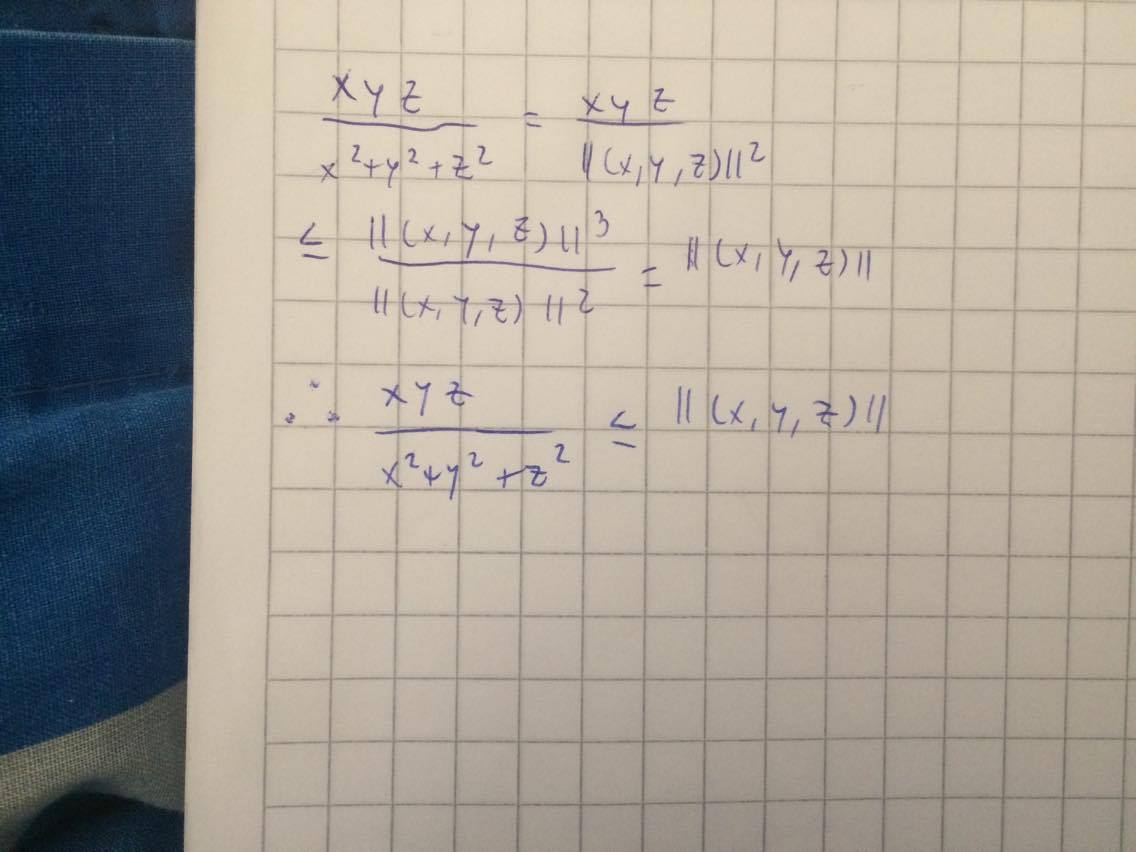 xyz / x²+y²+z² = xyz / ||(x,y,z)||²
≤ ||(x,y,z)||³ / ||(x,y,z)||² = ||(x,y,z)||
∴ xyz / x²+y²+z² ≤ ||(x,y,z)||